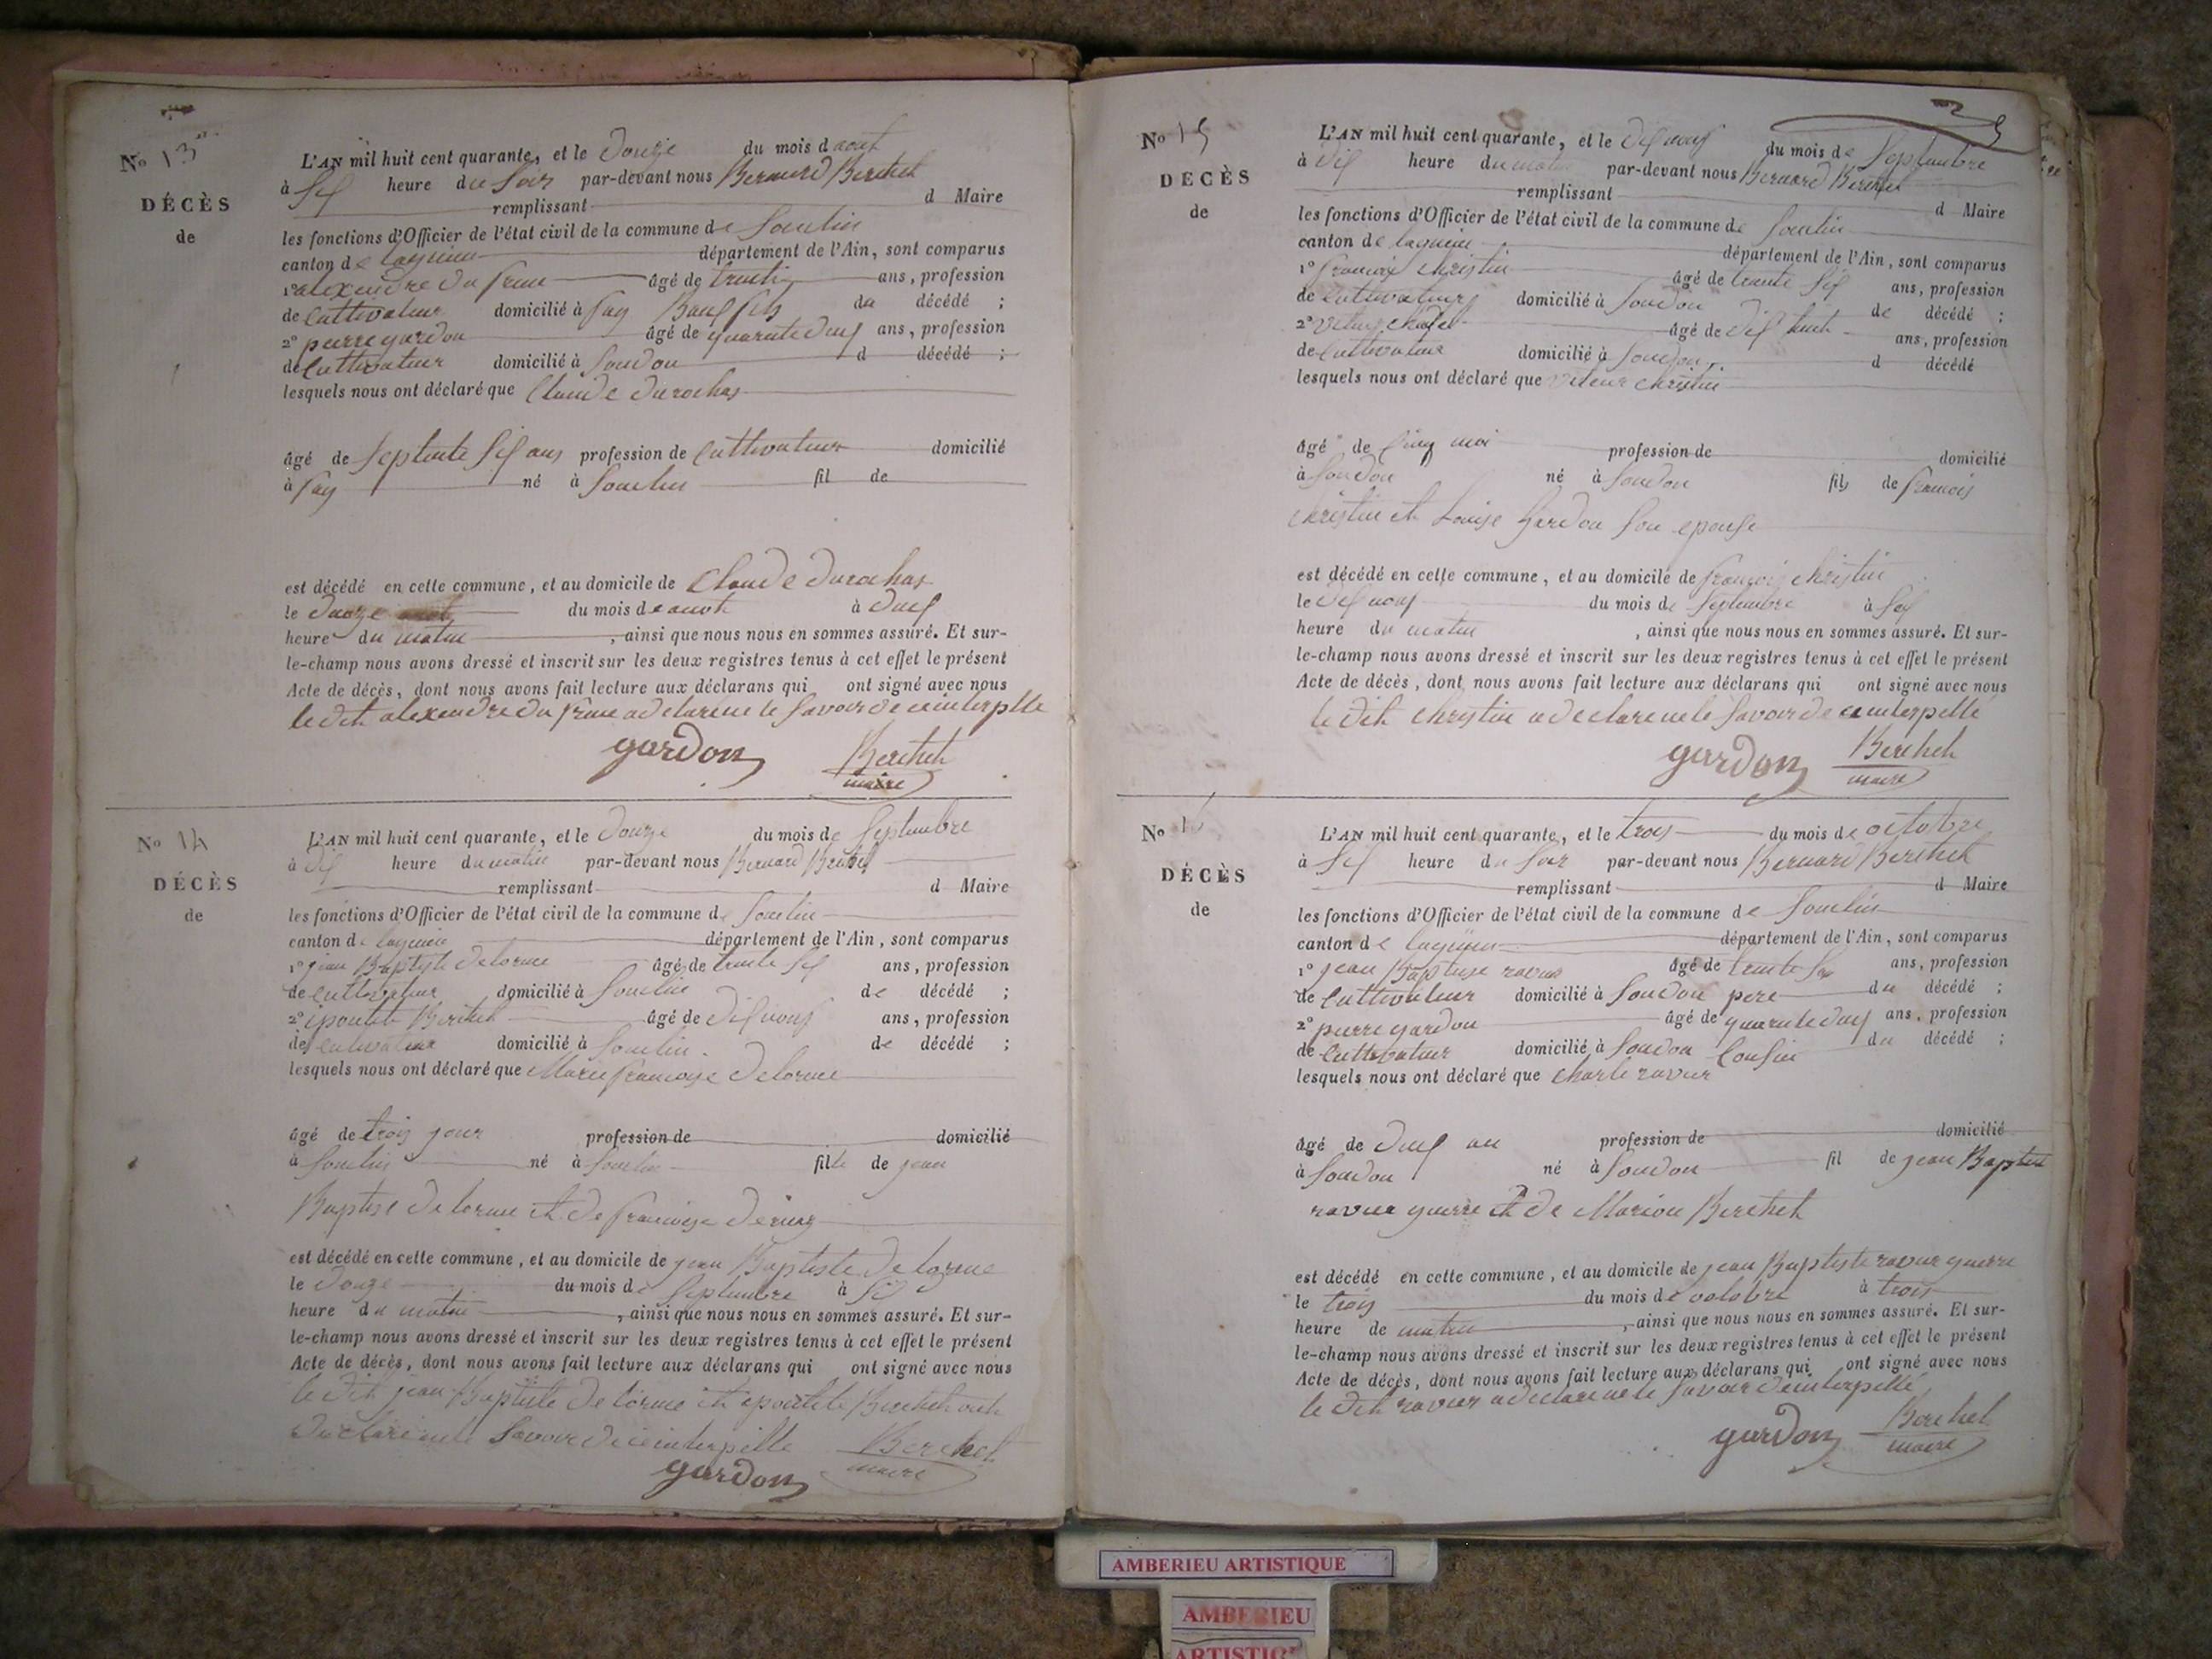 No 13
DÉCÈS
de
L'AN mil huit cent quarante, et le Douze du mois d aout
à Six heure du Soir par-devant nous Bernard Berthet
remplissant d Maire
les fonctions d'Officier de l'état civil de la commune de Souclin
canton de lagnieu département de l'Ain, sont comparus
1° alexendre du frene âgé de trente ans, profession
de Cultivateur domicilié à fay Beaux fils du décédé ;
2° pierre gardon âgé de quarante deux ans, profession
de Cultivateur domicilié à Soudon d décédé ;
lesquels nous ont déclaré que Claude durochas
âgé de Septente Six ans profession de Cultivateur domicilié
à fay né à Souclin fil de
est décédé en cette commune, et au domicile de Claude durochas
le douze du mois de aout à deux
heure du matin , ainsi que nous nous en sommes assuré. Et sur-
le-champ nous avons dressé et inscrit sur les deux registres tenus à cet effet le présent
Acte de décès, dont nous avons fait lecture aux déclarans qui ont signé avec nous
le dit alexendre du frene a declare ne le Savoir de ce interpelle
gardon Berthet
maire
No 14
DÉCÈS
de
L'AN mil huit cent quarante, et le Douze du mois de Septembre
à dix heure du matin par-devant nous Bernard Berthet
remplissant d Maire
les fonctions d'Officier de l'état civil de la commune de Souclin
canton de lagnieu département de l'Ain, sont comparus
1° jean Baptiste delorme âgé de trente Six ans, profession
de cultivateur domicilié à Souclin de décédé ;
2° ipoulite Berthet âgé de dix nouf ans, profession
de cultivateur domicilié à Souclin de décédé ;
lesquels nous ont déclaré que Marie francoise delorme
âgé de trois jour profession de domicilié
à Souclin né à Souclin fille de jean
Baptise delorme et de francoise
est décédé en cette commune, et au domicile de jean Baptiste delorme
le douze du mois de Septembre à Six
heure du matin , ainsi que nous nous en sommes assuré. Et sur-
le-champ nous avons dressé et inscrit sur les deux registres tenus à cet effet le présent
Acte de décès, dont nous avons fait lecture aux déclarans qui ont signé avec nous
le dit jean Baptiste delorme et ipoulite Berthet ont
declare ne le Savoir de ce interpelle Berthet
gardon maire
No 15
DÉCÈS
de
L'AN mil huit cent quarante, et le dix nouf du mois de Septembre
à dix heure du matin par-devant nous Bernard Berthet
remplissant d Maire
les fonctions d'Officier de l'état civil de la commune de Souclin
canton de lagnieu département de l'Ain, sont comparus
1° francois christin âgé de trente Six ans, profession
de cultivateur domicilié à Soudon de décédé ;
2° âgé de dix huit ans, profession
de cultivateur domicilié à Soudon d décédé
lesquels nous ont déclaré que christin
âgé de Cinq moi profession de domicilié
à Soudon né à Soudon fils de francois
christin et Louise Gardon Son epouse
est décédé en cette commune, et au domicile de francois christin
le dix nouf du mois de Septembre à Six
heure du matin , ainsi que nous nous en sommes assuré. Et sur-
le-champ nous avons dressé et inscrit sur les deux registres tenus à cet effet le présent
Acte de décès, dont nous avons fait lecture aux déclarans qui ont signé avec nous
le dit christin a declare ne le Savoir de ce interpellé
gardon Berthet
maire
No
DÉCÈS
de
L'AN mil huit cent quarante, et le trois du mois de octobre
à Six heure du Soir par-devant nous Bernard Berthet
remplissant d Maire
les fonctions d'Officier de l'état civil de la commune de Souclin
canton de lagnieu département de l'Ain, sont comparus
1° jean Baptiste ravier âgé de trente ans, profession
de Cultivateur domicilié à Soudon pere du décédé ;
2° pierre gardon âgé de quarante deux ans, profession
de Cultivateur domicilié à Soudon Cousin du décédé ;
lesquels nous ont déclaré que charle ravier
âgé de deux an profession de domicilié
à Soudon né à Soudon fil de jean Baptist
ravier guerre et de Marion Berthet
est décédé en cette commune, et au domicile de jean Baptiste ravier guerre
le trois du mois de octobre à trois
heure de matin , ainsi que nous nous en sommes assuré. Et sur-
le-champ nous avons dressé et inscrit sur les deux registres tenus à cet effet le présent
Acte de décès, dont nous avons fait lecture aux déclarans qui ont signé avec nous
le dit ravier a declare ne le Savoir de interpellé
gardon Berthet
maire
AMBERIEU ARTISTIQUE
AMBERIEU